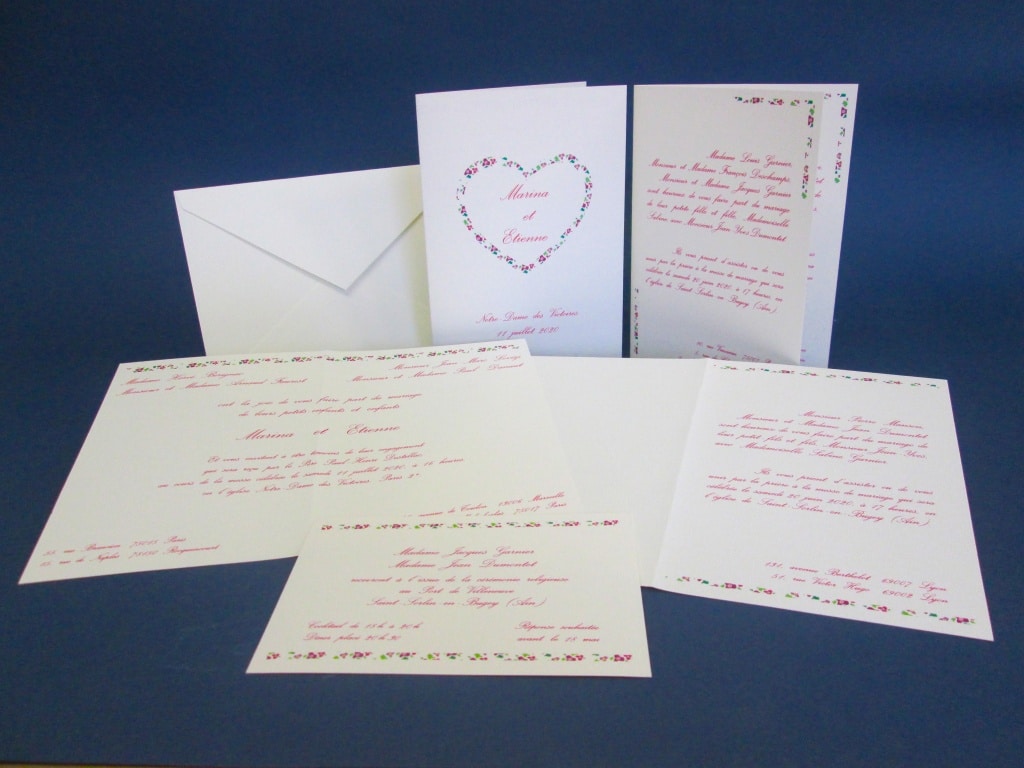 Marina
et
Etienne
Notre Dame des Victoires
11 juillet 2020
Madame Louis Garnier,
Monsieur et Madame François Deschamps,
Monsieur et Madame Jacques Garnier
sont heureux de vous faire part du mariage
de leur petite fille et fille, Mademoiselle
Sabine avec Monsieur Jean Yves Dumontet.
Ils vous prient d'assister ou de vous
unir par la prière à la messe de mariage qui sera
célébrée le samedi 20 juin 2020, à 17 heures, en
l'église de Saint Sorlin en Bugey (Ain).
Madame Henri
Monsieur et Madame Armand
Monsieur Jean Marc
Monsieur et Madame Paul
ont la joie de vous faire part du mariage
de leurs petits enfants et enfants
Marina et Etienne
Et vous invitent à être témoins de leur engagement
qui sera reçu par le Père Paul Henri
au cours de la messe célébrée le samedi 11 juillet 2020, à 16 heures
en l'église Notre Dame des Victoires Paris 2e
06004 Marseille
75017 Paris
rue 75015 Paris
55, rue de Naples
Monsieur Pierre
Monsieur et Madame Jean Dumontet
sont heureux de vous faire part du mariage de
leur petit fils et fils, Monsieur Jean Yves,
avec Mademoiselle Sabine Garnier.
Ils vous prient d'assister ou de vous
unir par la prière à la messe de mariage qui sera
célébrée le samedi 20 juin 2020, à 17 heures, en
l'église de Saint Sorlin en Bugey (Ain).
131, avenue Berthelot 69007 Lyon
51, rue Victor Hugo 69002 Lyon
Madame Jacques Garnier
Madame Jean Dumontet
recevront à l'issue de la cérémonie religieuse
au Port de Villeneuve
Saint Sorlin en Bugey (Ain)
Cocktail de 18 h à 20 h
Dîner placé 20 h 30
Réponse souhaitée
avant le 15 mai